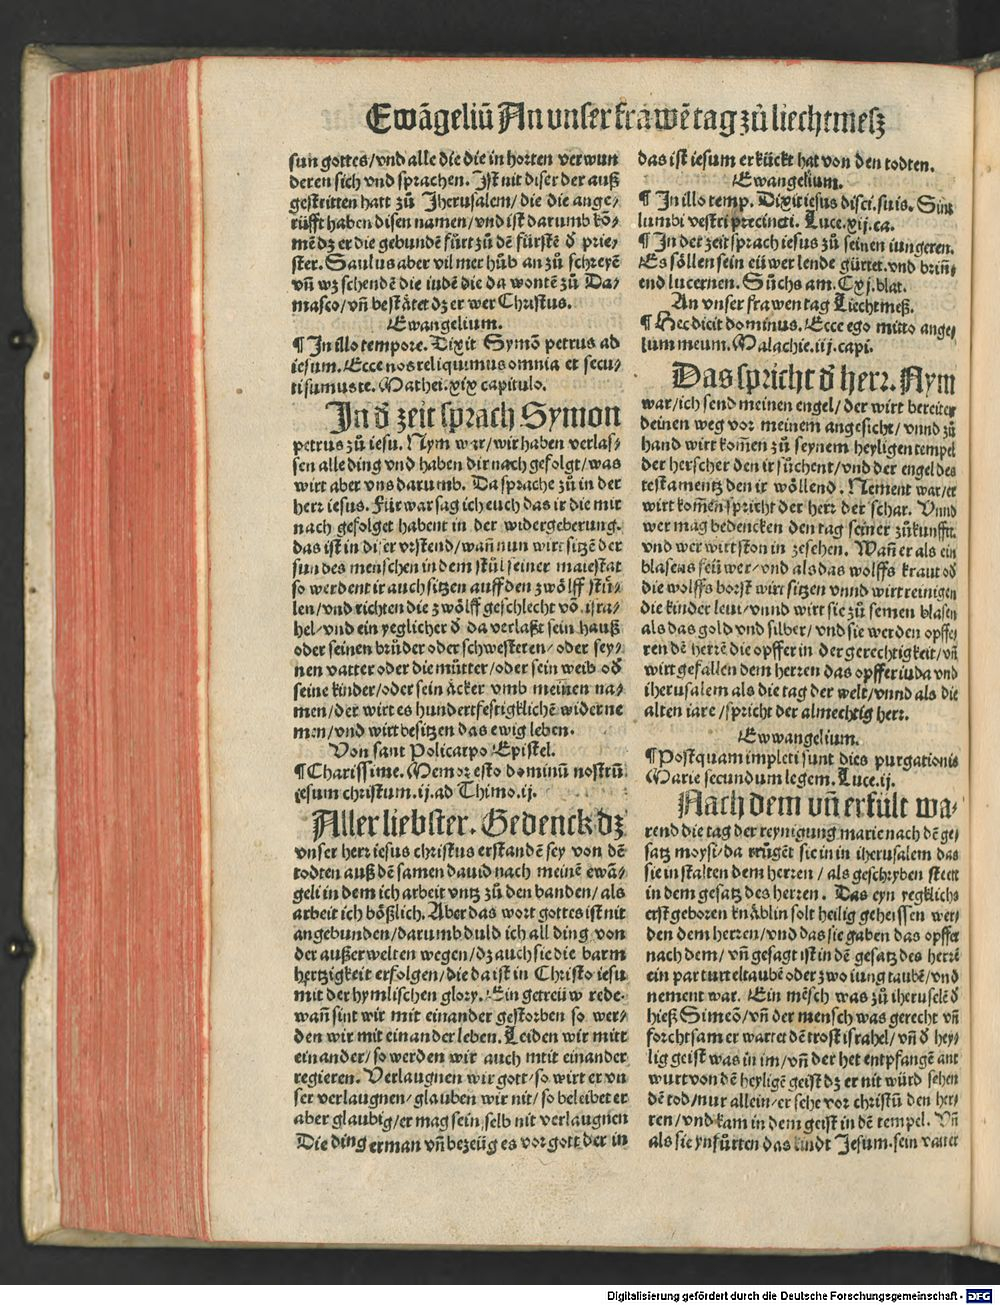 Ewāgeliū An vnser frawē tag zů liechtmesz
sun gottes/vnd alle die die in horten verwun
deren sich vnd sprachen. Ist nit diser der auß
gestritten hatt zů Jherusalem/ die die ange⸗
rüfft haben disen namen/vnd ist darumb kō⸗
mē dz er die gebundē fürt zů dē fürstē d prie⸗
ster. Saulus aber vil mer hůb an zů schreyē
vn̄ wz schendē die iudē die da wontē zů Da⸗
masco/vn̄ bestätet dz er wer Christus.
Ewangelium.
¶ In illo tempore. Dixit Symō petrus ad
iesum. Ecce nos reliquimus omnia et secu⸗
ti sumus te. Mathei.xix capitulo.
In d zeit sprach Symon
petrus zů iesu. Nym war/wir haben verlas⸗
sen alle ding vnd haben dir nach gefolgt/was
wirt aber vns darumb. Da sprache zů in der
herr iesus. Für war sag ich euch das ir die mir
nach gefolget habent in der widergeberung.
das ist in diser vrstend/wan̄ nun wirt sitzē der
sun des menschen in dem stůl seiner maiestat
so werdent ir auch sitzen auff den zwölff stü⸗
len/vnd richten die zwölff geschlecht vō isra⸗
hel/vnd ein yeglicher d da verlaßt sein hauß
oder seinen brüder oder schwesteren/ oder sey⸗
nen vatter oder die mütter/oder sein weib od
seine kinder/oder sein äcker vmb meinen na⸗
men/der wirt es hundertfestigklichē widerne
men/vnd wirt besitzen das ewig leben.
Von sant Policarpo Epistel.
¶ Charissime. Memor esto dominū nostrū
iesum christum.ij.ad Thimo.ij.
Aller liebster. Gedenck dz
vnser herr iesus christus erstandē sey von dē
todten auß dē samen dauid nach meinē ewā⸗
geli in dem ich arbeit vntz zů den banden/ als
arbeit ich bößlich. Aber das wort gottes ist nit
angebunden/darumb duld ich all ding von
der außerwelten wegen/dz auch sie die barm
hertzigkeit erfolgen/die da ist in Christo iesu
mit der hymlischen glory. Ein getreüw rede.
wan̄ sint wir mit einander gestorben so wer⸗
den wir mit einander leben. Leiden wir mitt
einander/so werden wir auch mtit einander
regieren. Verlaugnen wir gott/so wirt er vn
ser verlaugnen/glauben wir nit/so beleibet er
aber glaubig/er mag sein selb nit verlaugnen
Die ding erman vn̄ bezeüg es vor gott der in
das ist iesum erkückt hat von den todten.
Ewangelium.
¶ In illo temp. Dixit iesus disci.suis. Sint
lumbi vestri precincti. Luce.xij.ca.
¶ In der zeit sprach iesus zů seinen iungeren.
Es söllen sein eüwer lende gürtet.vnd brin̄⸗
end lucernen. Sůchs am.Cxj.blat.
An vnser frawen tag Liechtmeß.
¶ Hec dicit dominus. Ecce ego mitto ange⸗
lum meum. Malachie.iij.capi.
Das spricht d herr. Nym
war/ich send meinen engel/ der wirt bereiten
deinen weg vor meinem angesicht/ vnnd zů
hand wirt kom̄en zů seynem heyligen tempel
der herscher den ir sůchent/vnd der engel des
testamentz den ir wöllend. Nement war/er
wirt kom̄en spricht der herr der schar. Vnnd
wer mag bedencken den tag seiner zůkunfft.
vnd wer wirt ston in zesehen. Wan̄ er als ein
blasens feüwer/vnd als das wolffs kraut od
die wolffs borst wirt sitzen vnnd wirt reinigen
die kinder leui/vnnd wirt sie zů semen blasen
als das gold vnd silber/ vnd sie werden opffe⸗
ren dē herrē die opffer in der gerechtigkeit/vn̄
wirt gefallen dem herren das opffer iuda vnd
iherusalem als die tag der welt/vnnd als die
alten iare /spricht der almechtig herr.
Ewwangelium.
¶ Postquam impleti sunt dies purgationis
Marie secundum legem. Luce.ij.
Nach dem vn̄ erfült wa⸗
rend die tag der reynigung marie nach dē ge⸗
satz moysi/da trůgēt sie in in iherusalem das
sie in stalten dem herren / als geschryben steet
in dem gesatz des herren. Das eyn yegklichs
erstgeboren knäblin solt heilig geheissen wer⸗
den dem herren/vnd das sie gaben das opffer
nach dem/ vn̄ gesagt ist in dē gesatz des herrē
ein par turteltaubē oder zwo iung taubē/vnd
nement war. Ein mēsch was zů iheruselē d
hieß Simeō/vn̄ der mensch was gerecht vn̄
forchtsam er wartet dē trost israhel/ vn̄ d hey⸗
lig geist was in im/vn̄ der het entpfangē ant
wurt von dē heyligē geist dz er nit würd sehen
dē tod/nur allein/er sehe vor christū den her⸗
ren/vnd kam in dem geist in dē tempel. Vn̄
als sie ynfürten das kindt Jesum.sein vatter
Digitalisierung gefördert durch die Deutsche Forschungsgemeinschaft - DFG